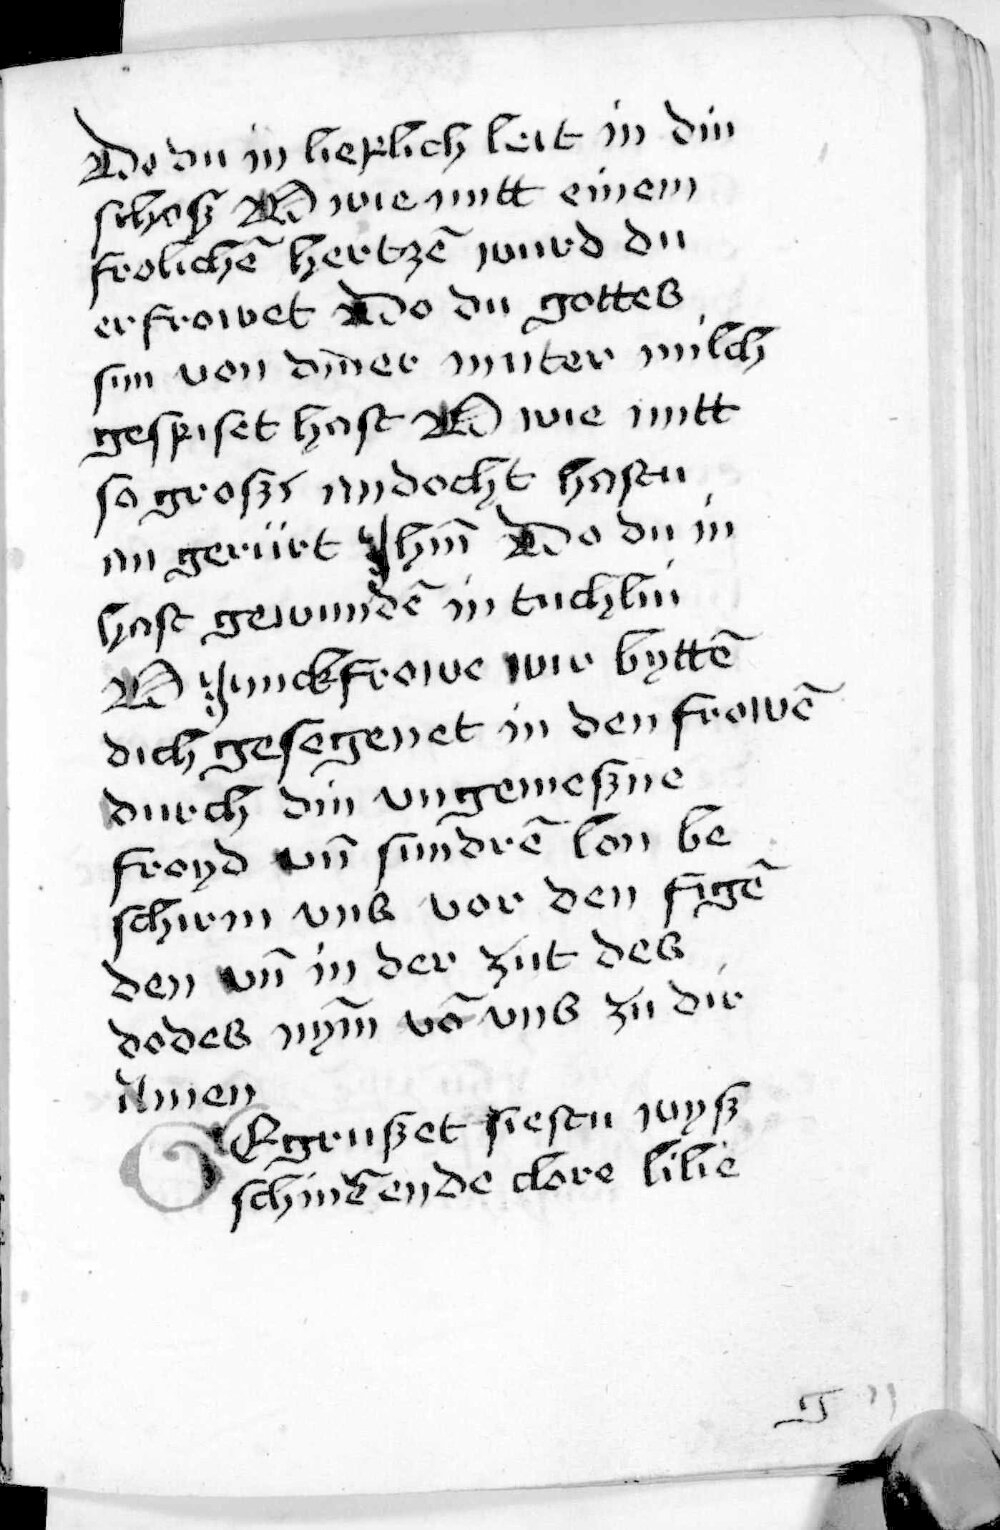 Do du in lieplich leit in din
schosz O wie mitt einem
frolichē hertzē wurd du
erfrowet Do du gottes
sun von diner muter milch
gespiset hast O wie mitt
so groszr andocht hastu
an gerürt Jhm̄ Do du in
hast gewundē in tuchlin
O Junckfrowe wir byttē
dich gesegenet in den frowē
durch din vngemeszne
froyd vn̄ sundrē lon be
schirm vns vor den figē
den vn̄ in der zut des
dodes nym̄ vō vns zu dir
Amen
GEgruszet siestu wysz
schinēende clore lilie